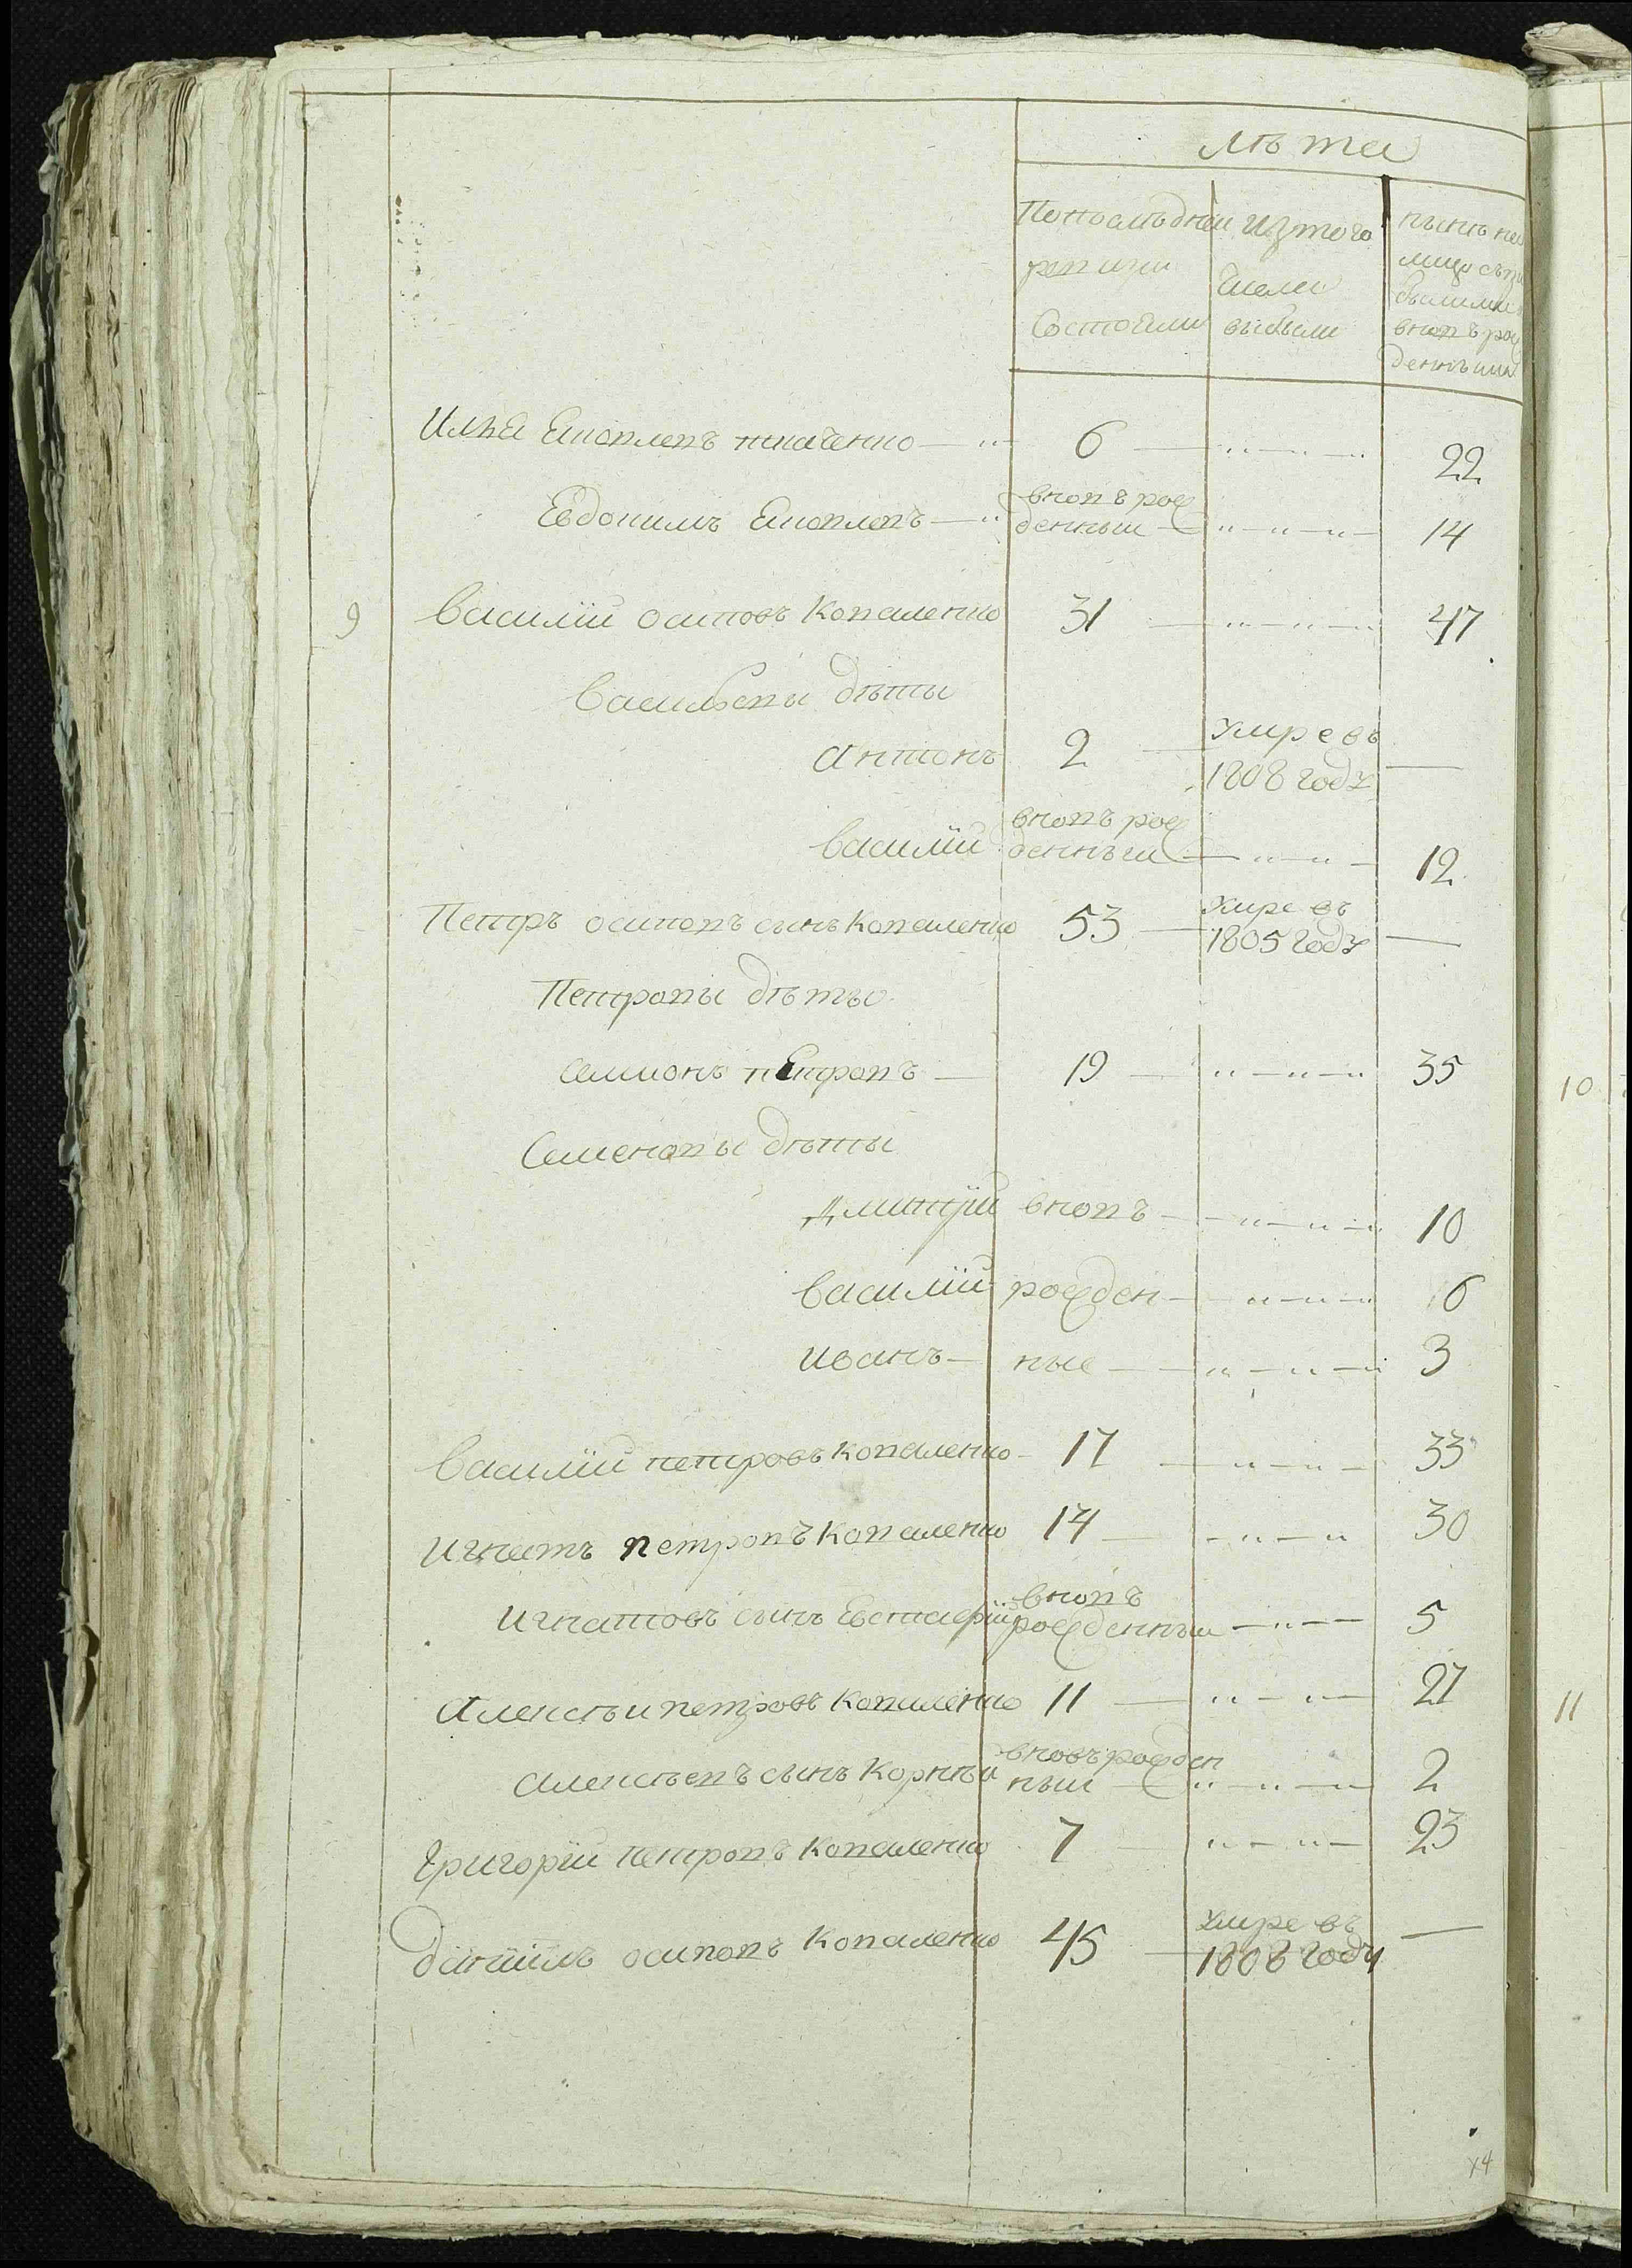 лѣта
Попослѣдней изтого нынѣ на
ревизии числа лицо съпри
Состояли выбыли былыми
вновь рож
денными
Илья Яковлевъ ткаченко 6 22
Евдокимъ Яковлевъ вновь рож
денный 14
9 Василий осиповъ Коваленко 31 47
Васильевы дѣты
Антонъ 2 умре въ
1808 годȣ
Василий вновь рож
денный 12
Петръ осиповъ сынъ Коваленко 53 умре въ
1805 годȣ
Петровы дѣты
Семионъ пЕтровъ 19 35
Семеновы дѣты
Дмитрій вновь 10
Василий рожден 6
Иванъ ные 3
Василий петровъ Коваленко 17 33
Игнатъ петровъ Коваленко 14 30
Игнатовъ сынъ Евстафий вновь
рожденный 5
Алексѣй петровъ Коваленко 11 27
Алексѣевъ сынъ Корнѣй вновь рожден
ный 2
Григорій петровъ Коваленко 7 23
Даниилъ осиповъ Коваленко 45 умре въ
1808 году
10
11